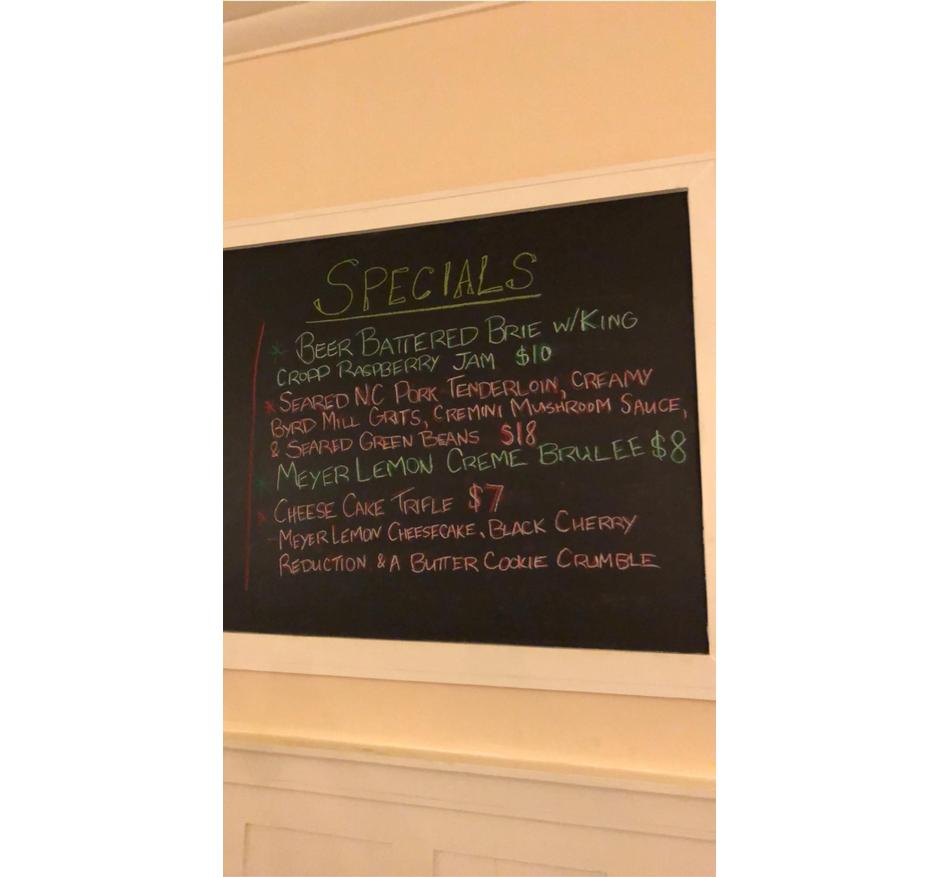 SPECIALS
* BEER BATTERED BRIE W/KING
CROPP RASPBERRY JAM $10
* SEARED NC PORK TENDERLOIN, CREAMY
BYRD MILL GRITS, CREMINI MUSHROOM SAUCE,
& SEARED GREEN BEANS $18
* MEYER LEMON CREME BRULEE $8
* CHEESE CAKE TRIFLE $7
- MEYER LEMON CHEESECAKE, BLACK CHERRY
REDUCTION & A BUTTER COOKIE CRUMBLE